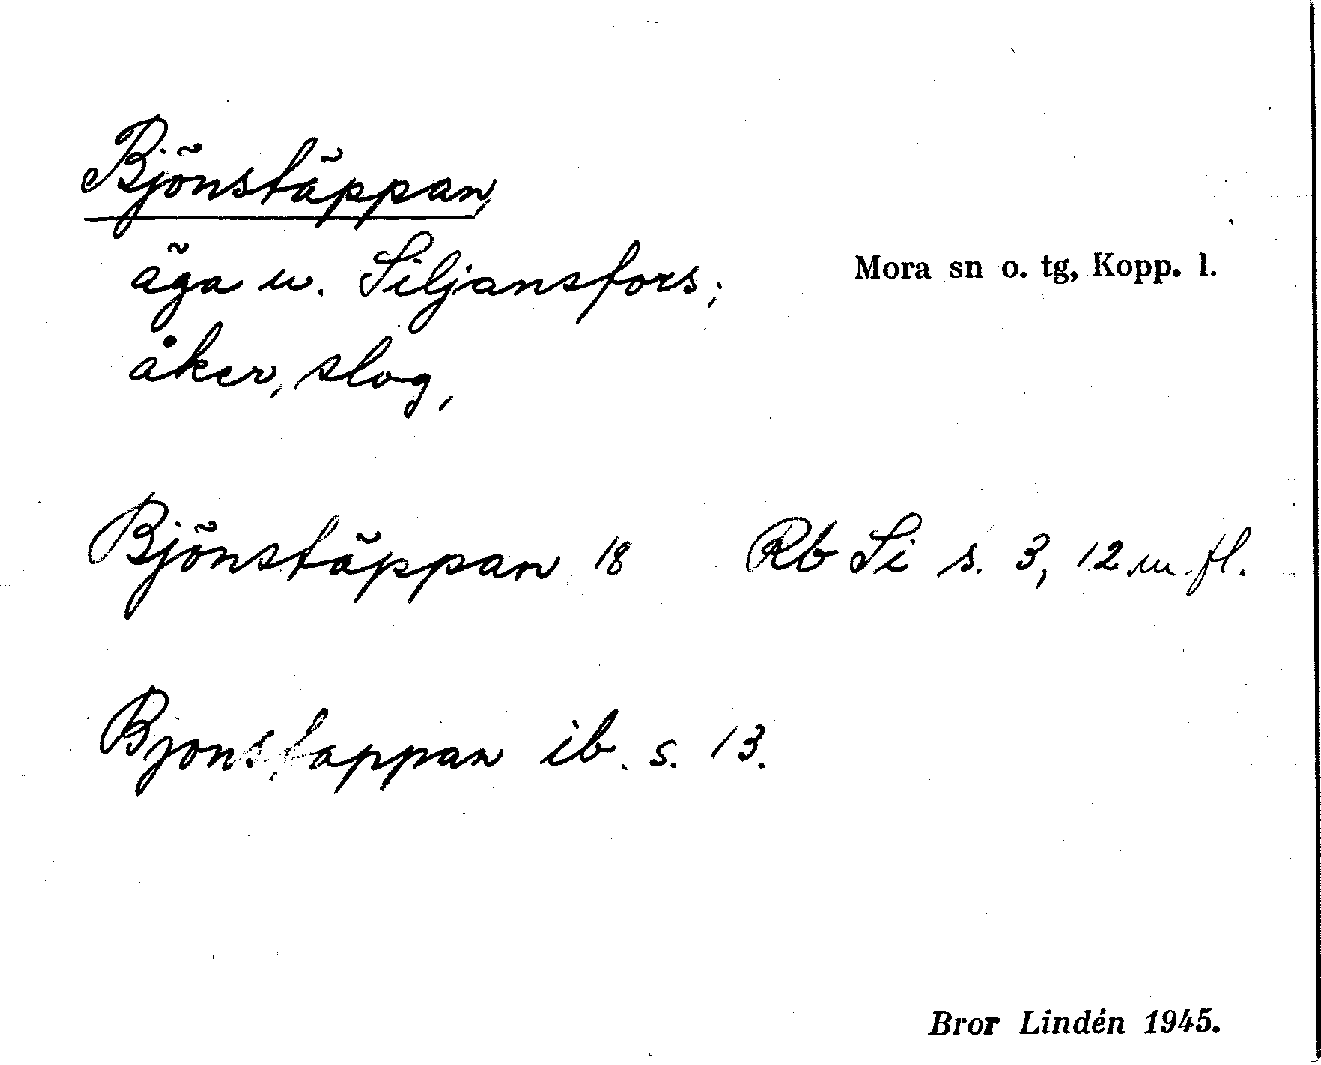 Bjönstäppan,
Mora sn o. tg, Kopp. l.
äga u. Siljansfors;
åker, slog,
Bjönstäppan 18 Rb Si s. 3, 12 m. fl.
Bjonstappan ib. s. 13.
Bror Lindén 1945.